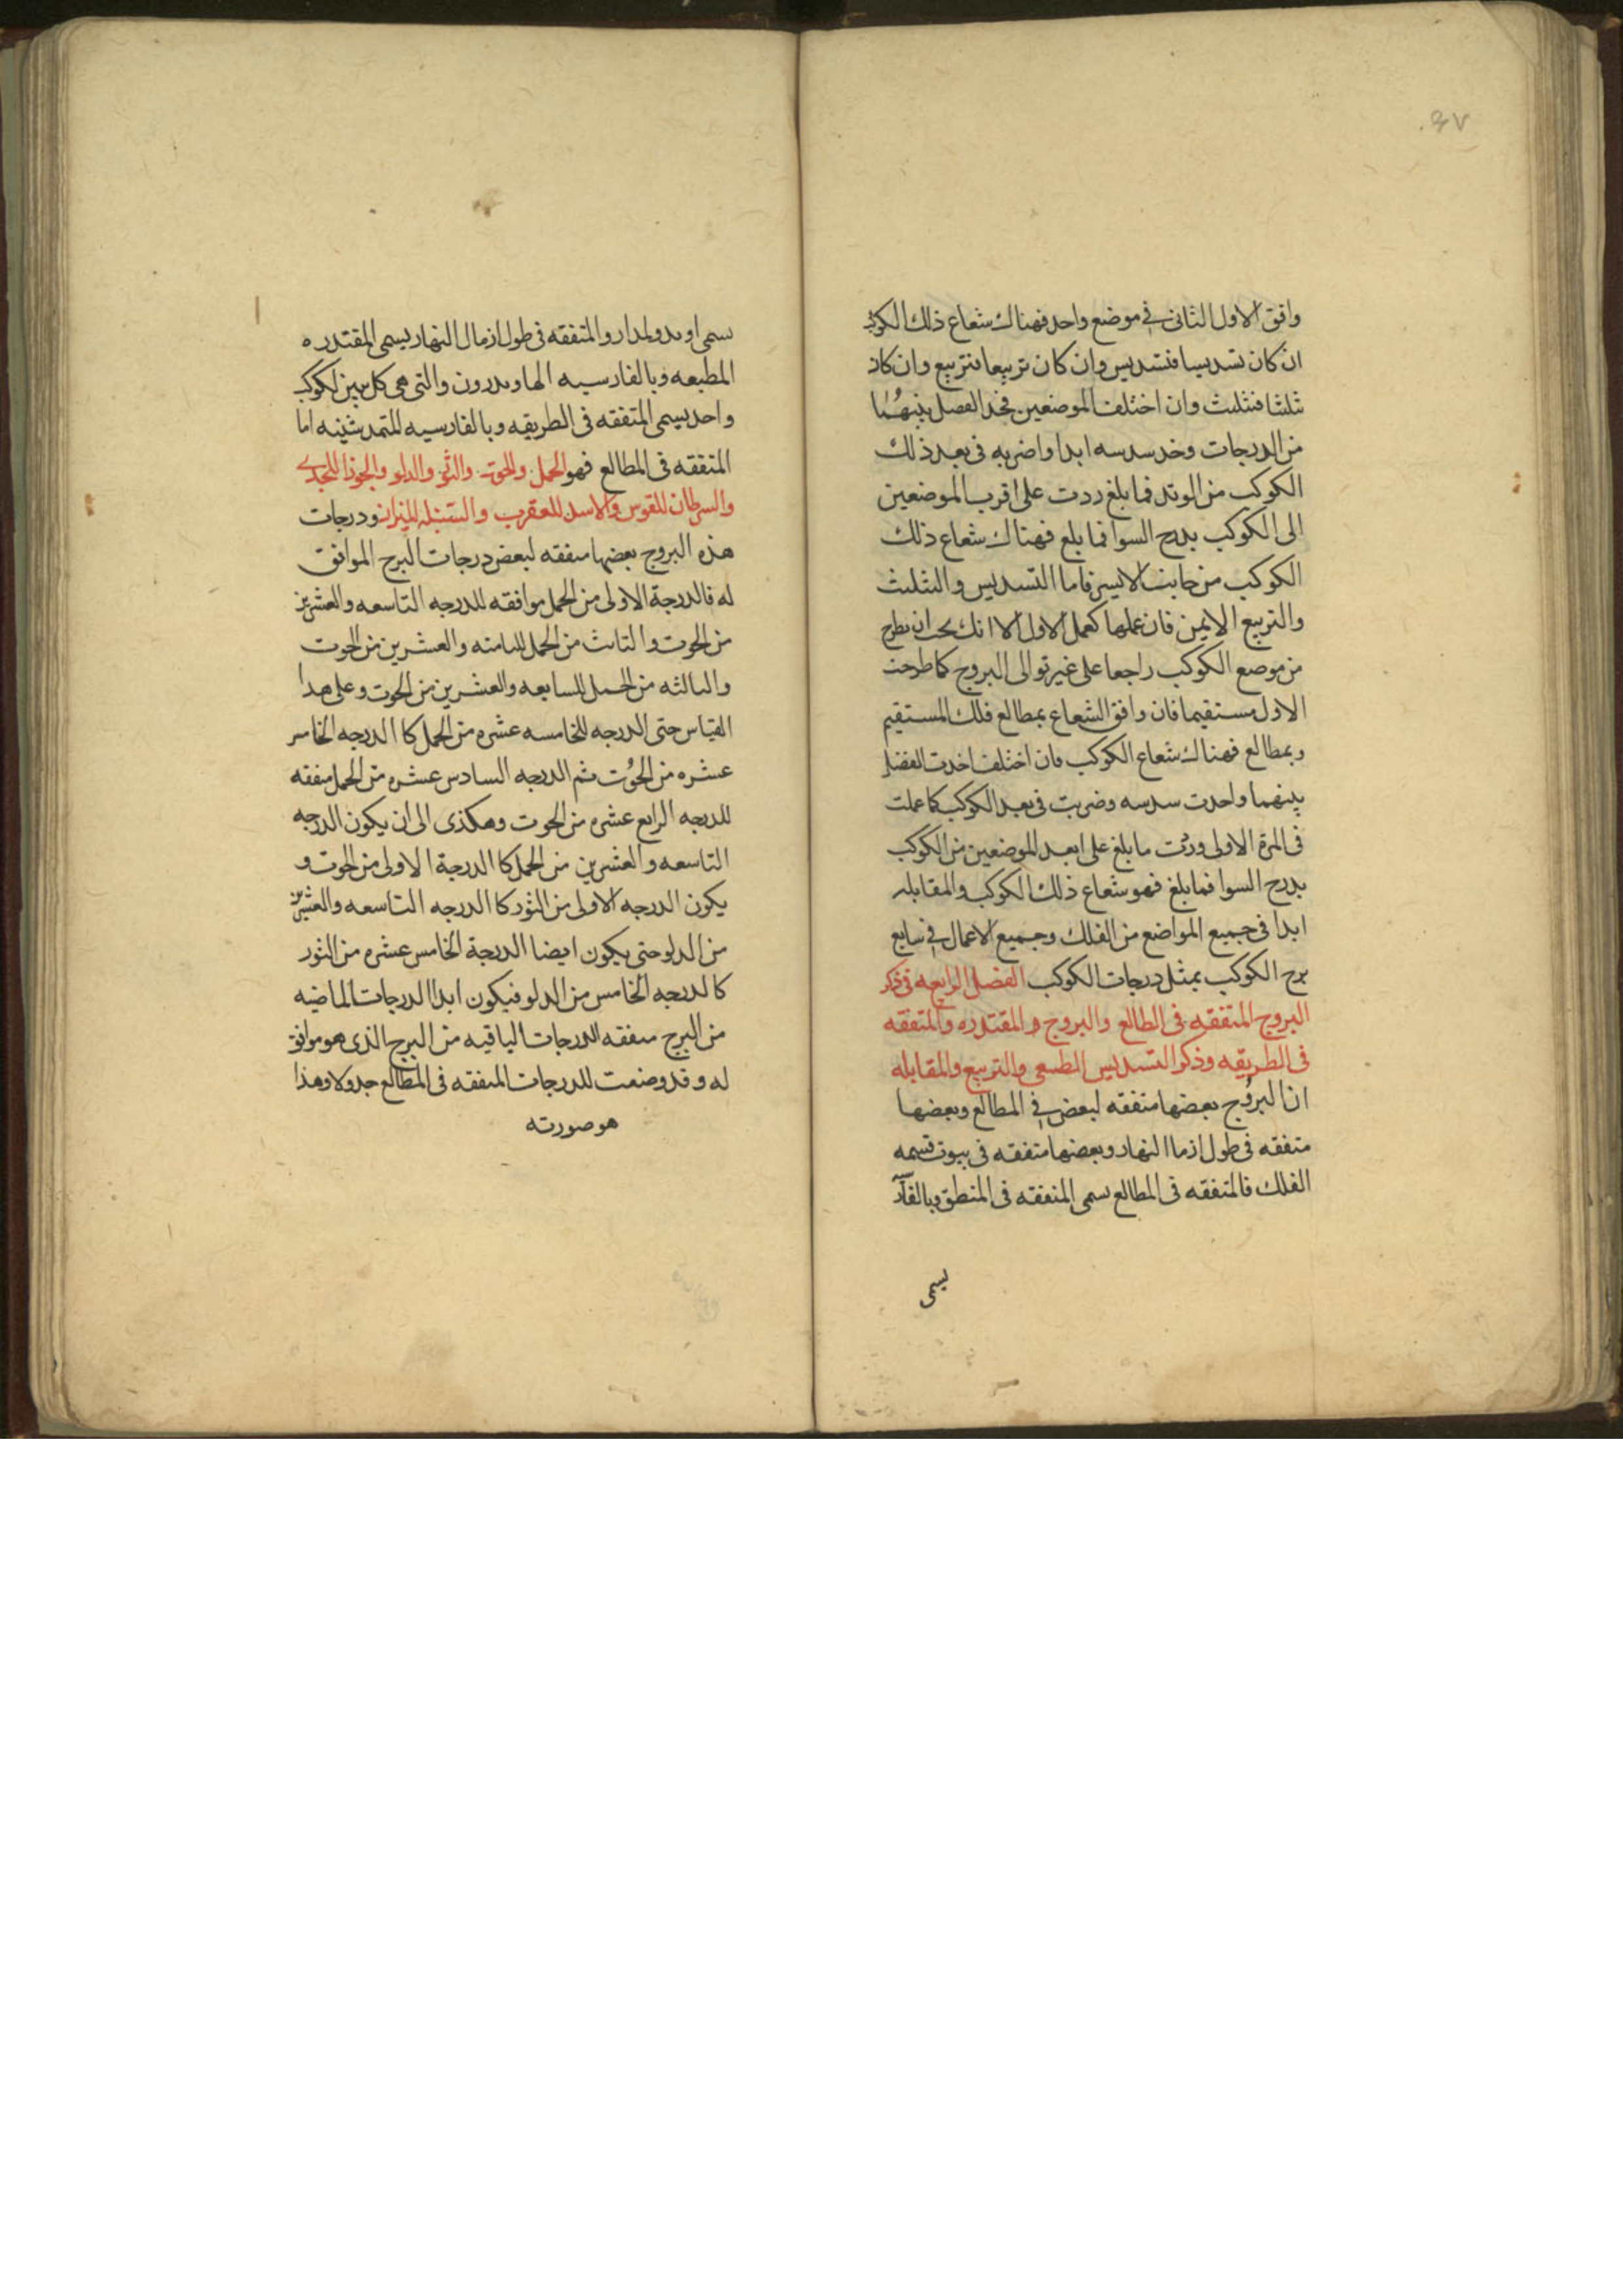 ٤٧
وافق الاول الثانى فى موضع واحد فهناك شعاع ذلك الكوكب
ان كان تسديسا فتسديس وان كان تربيعا فتربيع وان كان
تثلثا فتثليث وان اختلف الموضعين فخد الفصل بينهُما
من الدرجات وخد سدسه ابدا واضربه فى بعد ذلك
الكوكب من الوتد فما بلغ زدت على اقرب الموضعين
الى الكوكب بدرج السوا فما بلغ فهناك شعاع ذلك
الكوكب من جانب الايسر فاما التسديس والتثليث
والتربيع الايمن فان عملها كعمل الاول الا انك يجب ان تطرح
من موضع الكوكب راجعا على غير توالى البروج كما طرحت
الاول مستقيما فان وافق الشعاع بمطالع فلك المستقيم
وبمطالع فهناك شعاع الكوكب فان اختلف اخدت الفضل
بينهما واحدت سدسه وضربت فى بعد الكوكب كما عملت
فى المرة الاولى وزدت ما بلغ على ابعد الموضعين من الكوكب
بدرج السوا فما بلغ فهو شعاع ذلك الكوكب والمقابله
ابدا فى جميع المواضع من الفلك وجميع الاعمال فى سابع
برج الكوكب بمثل درجات الكوكب الفصل الرابع فى ذكر
البروج المتفقه فى الطالع والبروج المقتدره والمتفقه
فى الطريقه وذكر التسديس الطبعى والتربيع والمقابله
ان البروُج بعضها متفقه لبعض فى المطالع وبعضها
متفقه فى طول ازما النهار وبعضها متفقه فى بيوت قسمه
الفلك فالمتفقه فى المطالع سمى المتفقه فى المنطق وبالفار
يسمى
سمى والمتفقه فى طول ازمال النهار يسمى المقتدره
المطبعه وبالفارسيه والتى هى كل بين لكوكب
واحد يسمى المتفقه فى الطريقه وبالفارسيه اما
المتفقه فى المطالع فهو الحمل والحوت والثور والدلو والجوزا للجدى
والسرطان للقوس والاسد للعقرب والسنبله للميزان ودرجات
هذه البروج بعضها متفقه لبعض درجات البرج الموافق
له فالدرجة الاولى من الحمل موافقه للدرجه التاسعه والعشرين
من الحوت والثانيث من الحمل للثامنه والعشرين من الحوت
والثالثه من الحمل للسابعه والعشرين من الحوت وعلى هدا
القياس حتى الدرجه الخامسه عشره من الحمل كا الدرجه الخامس
عشره من الحوُت ثم الدرجه السادس عشره من الحمل متفقه
للدرجه الرابع عشره من الحوت وهكذى الى ان يكون الدرجه
التاسعه والعشرين من الحمل كا الدرجة الاولى من الحوت و
يكون الدرجه الاولى من الثور كا الدرجه التاسعه والعشرين
من الدلو حتى يكون ايضا الدرجة الخامس عشره من الثور
كالدرجه الخامس من الدلو فيكون ابدا الدرجات الماضيه
من البرج متفقه للدرجات الباقيه من البرج الذى هو موافق
له وقد وضعت للدرجات المتفقه فى المطالع جدولا وهذا
هو صورته